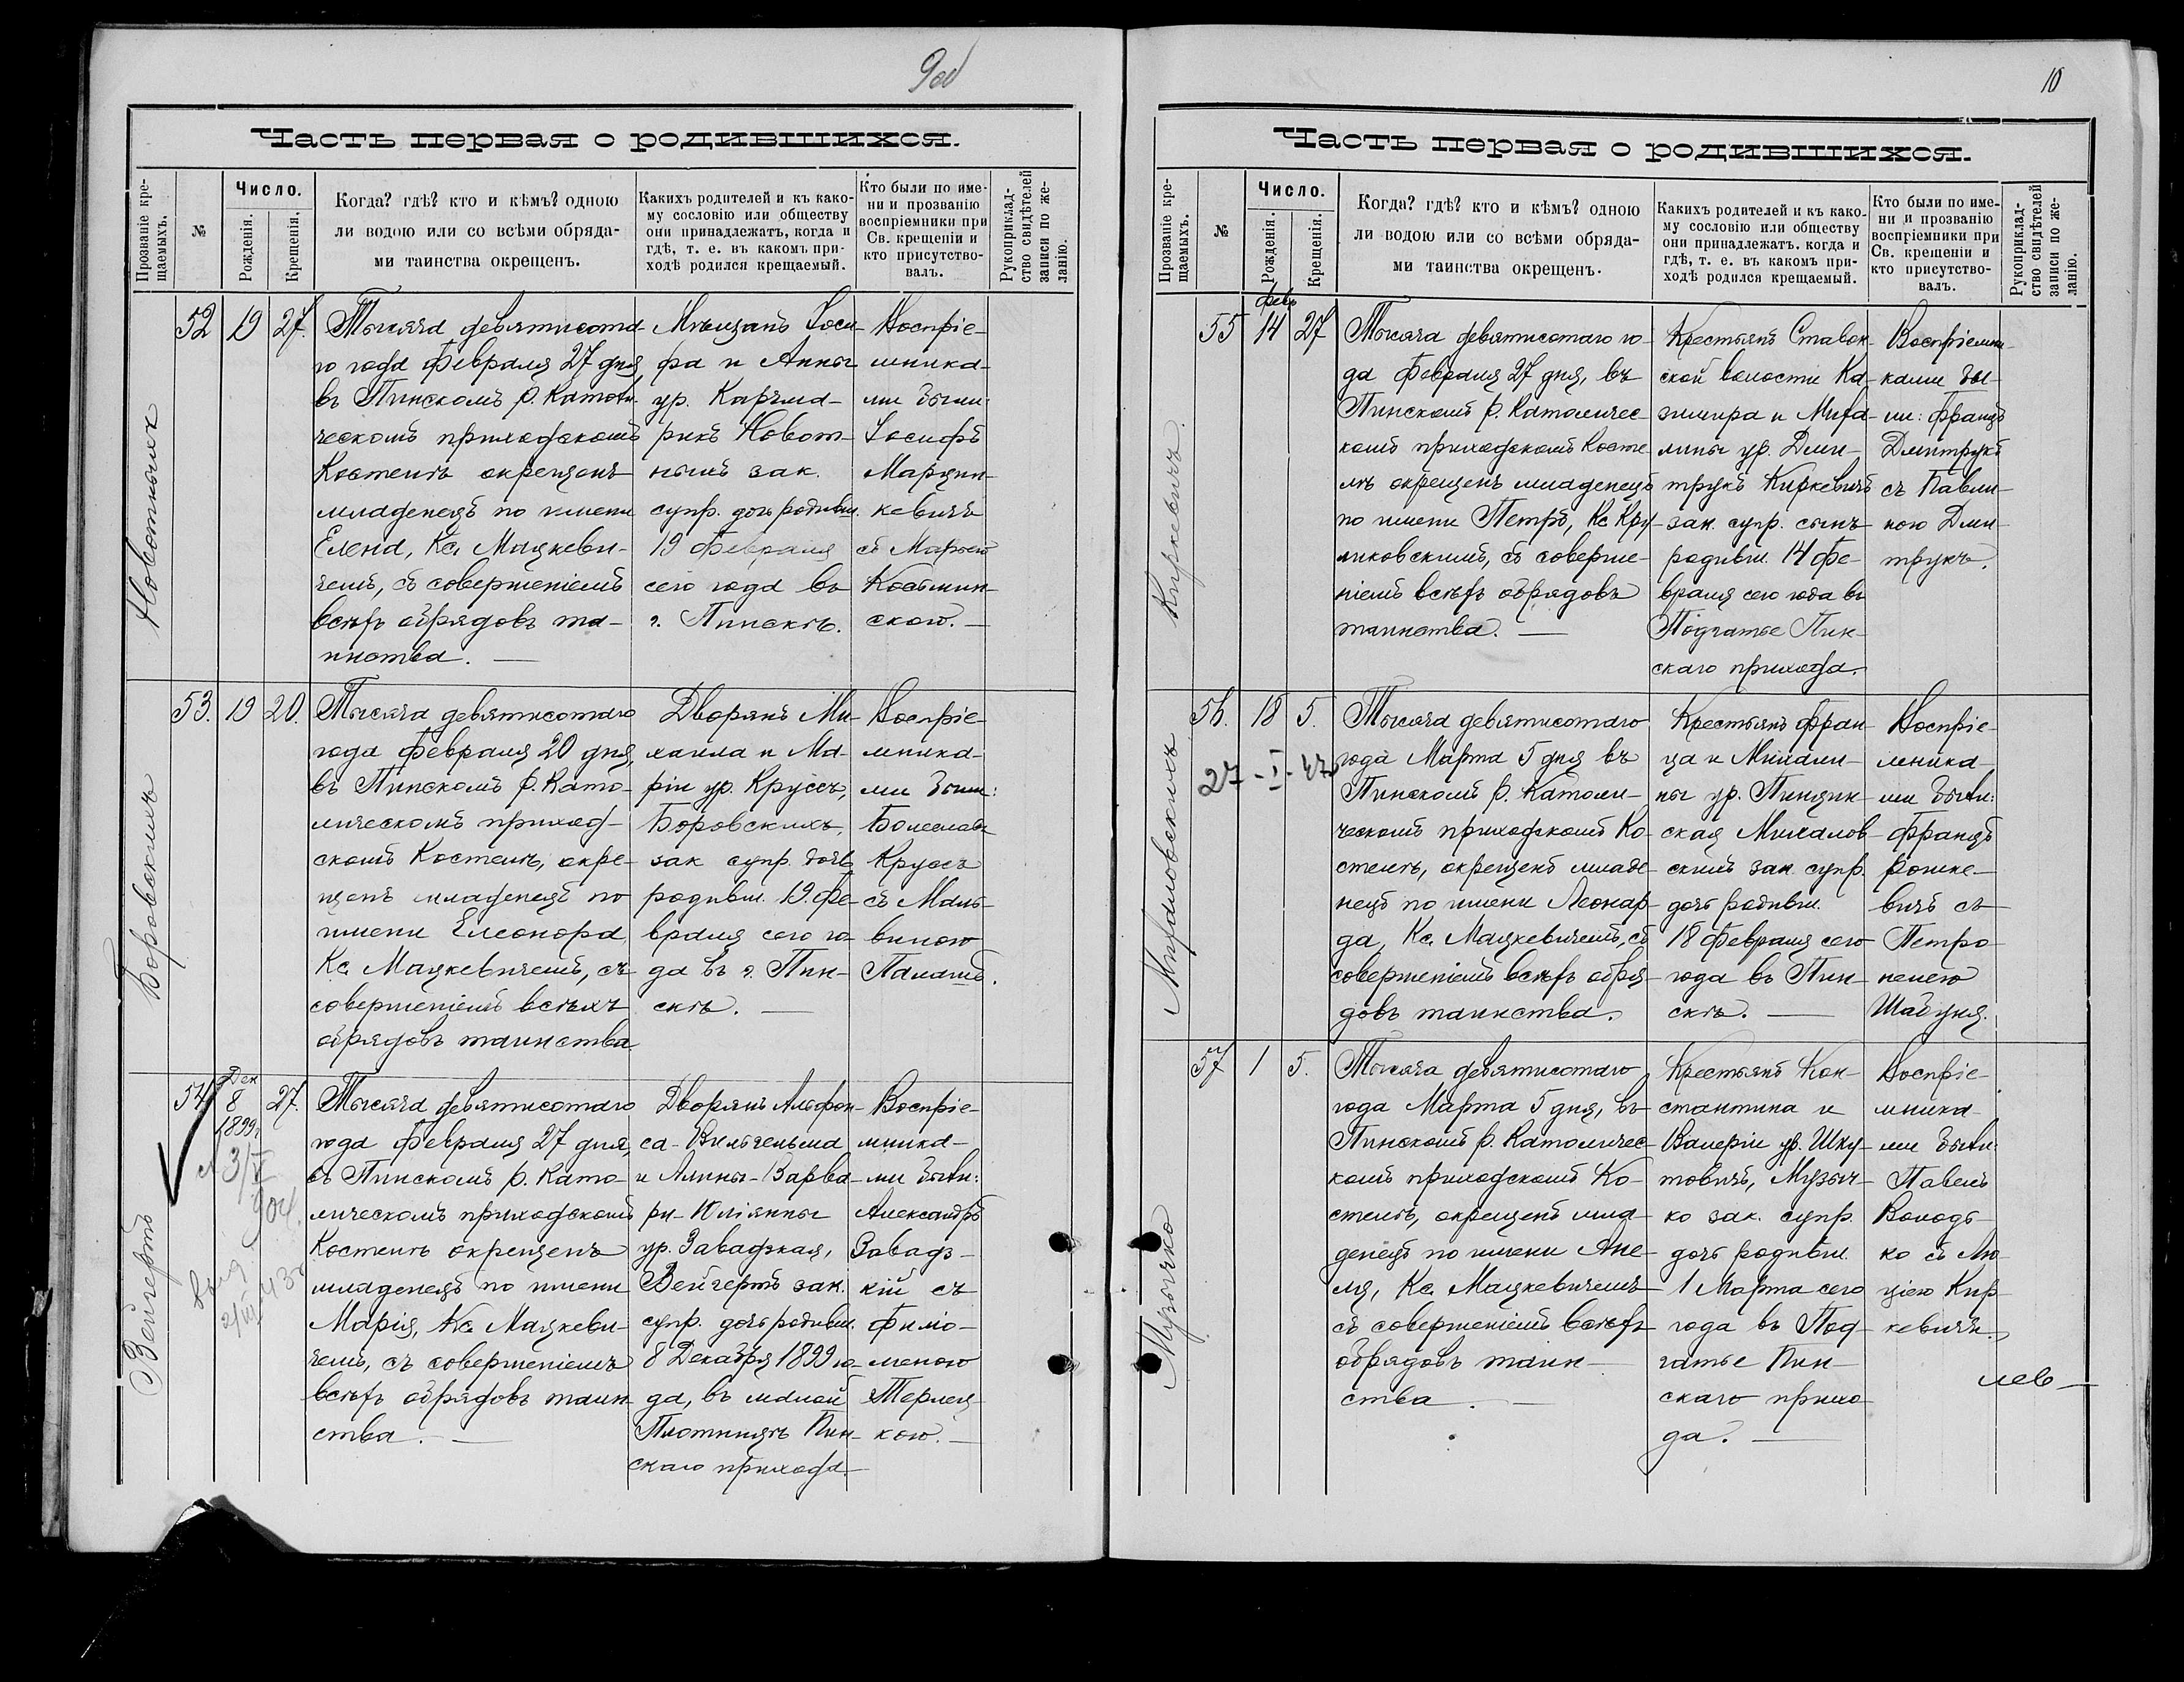 9об
Часть первая о родившихся.
Прозваніе кре-
щаемыхъ.
№
Число.
Рожденія.
Крещенія.
Когда? гдѣ? кто и кѣмъ? одною
ли водою или со всѣми обряда-
ми таинства окрещенъ.
Какихъ родителей и къ како-
му сословію или обществу
они принадлежатъ, когда и
гдѣ, т. е. въ какомъ при-
ходѣ родился крещаемый.
Кто были по име-
ни и прозванію
воспріемники при
Св. крещеніи и
кто присутство-
валъ.
Рукоприклад-
ство свидѣтелей
записи по же-
ланію.
52
19
27.
Тысяча девятисота
го года Февраля 27 дня
въ Пинскомъ р. Католи-
ческомъ приходскомъ
Костелѣ окрещенъ
младенецъ по имени
Елена, Кс. Мацкеви-
чемъ, съ совершеніемъ
всѣхъ обрядовъ та-
инства.
Мѣщанъ Іоси-
фа и Анны
ур. Качма-
рикъ Новот-
ныхъ зак.
супр. дочь родивш.
19 Февраля
сего года въ
г. Пинскѣ.
Воспріе-
мника-
ми были:
Іосифъ
Марцин-
кевичъ
съ Маріею
Косьмин-
скою.
Боровскихъ
53.
19
20.
Тысяча девятисотаго
года Февраля 20 дня,
въ Пинскомъ р. Като-
лическомъ приход-
скомъ Костелѣ, окре-
щенъ младенецъ по
имени Елеонора
Кс. Мацкевичемъ, съ
совершеніемъ всѣхъ
обрядовъ таинства
Дворянъ Ми-
хаила и Ма-
ріи ур. Крусъ,
Боровскихъ,
зак супр. дочь
родивш. 19. Фе-
враля сего го-
да въ г. Пин-
скѣ.
Воспріе-
мника-
ми были:
Болеславъ
Крусъ
съ Маль-
виною
Паматъ.
Вейгертъ
54
Дек
8
1899г
27.
Тысяча девятисотаго
года Февраля 27 дня,
въ Пинскомъ р. Като-
лическомъ приходскомъ
Костелѣ окрещенъ
младенецъ по имени
Марія, Кс. Мацкеви-
чемъ, съ совершеніемъ
всѣхъ обрядовъ таин
ства.
Дворянъ Альфон-
са-Вильгельма
и Алины-Варва-
ры-Юліанны
ур. Завадзкая,
Вейгертъ зак.
супр. дочь родивш.
8 Декабря 1899 го-
да, въ малой
Плотницѣ Пин-
скаго прихода.
Воспріе-
мника-
ми были:
Александръ
Завадз-
кій съ
Фило-
меною
Терлец-
кою.
10
Часть первая о родившихся.
Прозваніе кре-
щаемыхъ.
№
Число.
Рожденія.
Крещенія.
Когда? гдѣ? кто и кѣмъ? одною
ли водою или со всѣми обряда-
ми таинства окрещенъ.
Какихъ родителей и къ како-
му сословію или обществу
они принадлежатъ. когда и
гдѣ, т. е. въ какомъ при-
ходѣ родился крещаемый.
Кто были по име-
ни и прозванію
воспріемники при
Св. крещеніи и
кто присутство-
валъ.
Рукоприклад-
ство свидѣтелей
записи по же-
ланію.
Киркевичъ
55
Февр
14
27
Тысяча девятисотаго го-
да Февраля 27 дня, въ
Пинскомъ р. Католичес-
комъ приходскомъ Косте
лѣ окрещенъ младенецъ
по имени Петръ, Кс. Кру-
ликовскимъ, съ соверше-
ніемъ всѣхъ обрядовъ
таинства.
Крестьянъ Ставок-
ской волости Ка-
зимира и Миха-
лины ур. Дми-
трукъ Киркевичъ
зак. супр. сынъ
родивш. 14 Фе-
враля сего года въ
Подчатье Пин-
скаго прихода.
Воспріемни-
ками бы-
ли: Францъ
Дмитрукъ
съ Павли-
ною Дми-
трукъ.
Михаловскихъ
56.
18
5.
27-I-47г
Тысяча девятисотаго
года Марта 5 дня въ
Пинскомъ р. Католи-
ческомъ приходскомъ Ко-
стелѣ, окрещенъ младе-
нецъ по имени Леонар-
да, Кс. Мацкевичемъ, съ
совершеніемъ всѣхъ обря-
довъ таинства.
Крестьянъ Фран-
ца и Михали-
ны ур. Пинцин-
ская Михалов-
скихъ зак. супр.
дочь родивш.
18 Февраля сего
года въ Пин-
скѣ.
Воспріе-
мника-
ми были:
Францъ
Рошке-
вичъ съ
Петро
нелею
Шабуня.
Музычко
57
1
5.
Тысяча девятисотаго
года Марта 5 дня, въ
Пинскомъ р. Католичес-
комъ приходскомъ Ко-
стелѣ, окрещенъ мла-
денецъ по имени Ане-
ля, Кс. Мацкевичемъ
съ совершеніемъ всѣхъ
обрядовъ таин-
ства.
Крестьянъ Кон-
стантина и
Валеріи ур. Шку-
товичъ, Музыч-
ко зак. супр.
дочь родивш.
1 Марта сего
года въ Под-
чатье Пин-
скаго прихо
да.
Воспріе-
мника-
ми были:
Павелъ
Володь-
ко съ Лю-
ціею Кир-
кевичъ.